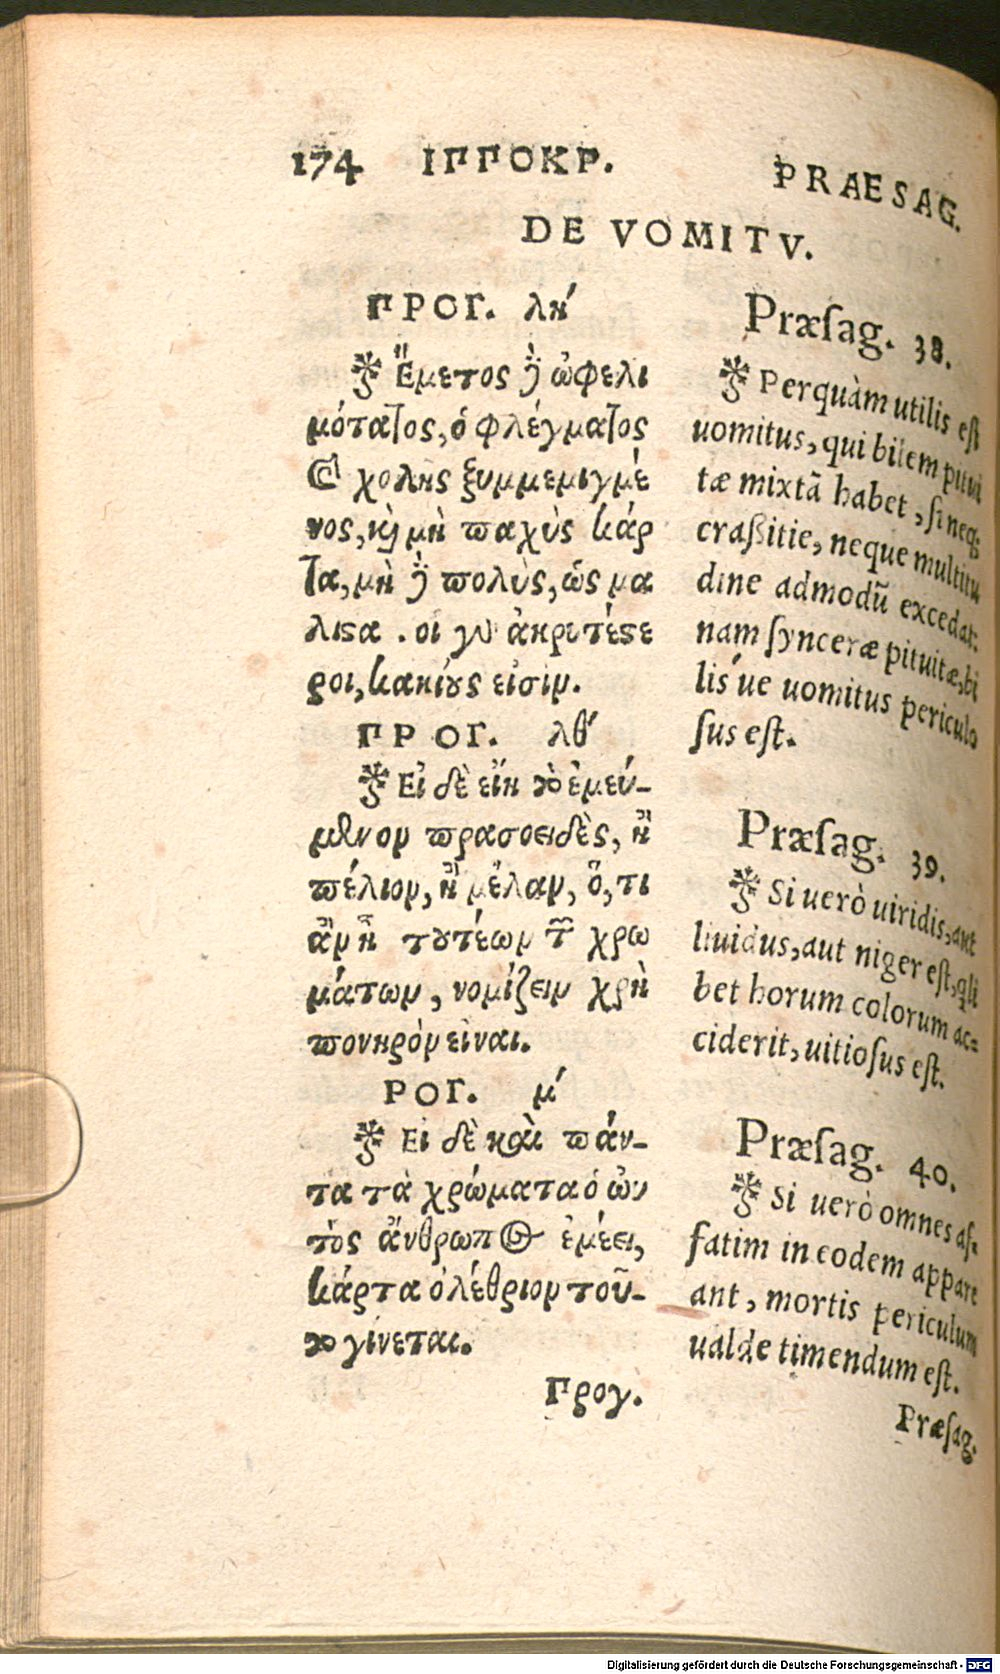 174 ΙΠΠΟΚΡ. PRAESAG.
DE VOMITV.
ΠΡΟΓ. λη΄
Ἔμετος δὲ ὠφελι
μότατος, ὁ φλέγματος
καὶ χολῆς ξυμμεμιγμέ
νος, καὶ μὴ παχὺς κάρ
τα, μὴ δὲ πολὺς, ὡς μα
λιστα . οἱ γὸ ἀκρητέστε
ροι, κακίους εἰσίν.
ΠΡΟΓ. λθ΄
Εἰ δὲ εἴη τὸ ἐμεύ-
μενον πρασοειδὲς, ἢ
πέλιον, ἢ μέλαν, ὅ, τι
ἂν ᾖ τουτέων τῶν χρω
μάτων, νομίζειν χρὴ
πονηρὸν εἶναι.
ΡΟΓ. μ΄
Εἰ δὲ καὶ πάν-
τα τὰ χρώματα ὁ ὠυ
τὸς ἄνθρωπος ἐμέει,
κάρτα ὀλέθριον τοῦ-
το γίνεται.
Προγ.
Præsag. 38.
Perquàm utilis est
uomitus, qui bilem pitui
tæ mixtā habet, si neq;
crassitie, neque multitu
dine admodū excedat:
nam synceræ pituitæ, bi
lis ue uomitus periculo
sus est.
Præsag. 39.
Si uerò uiridis, aut
liuidus, aut niger est, qli
bet horum colorum ac=
ciderit, uitiosus est.
Præsag. 40.
Si uerò omnes af-
fatim in eodem appare
ant, mortis periculum
ualde timendum est.
Præsag.
Digitalisierung gefördert durch die Deutsche Forschungsgemeinschaft - DFG